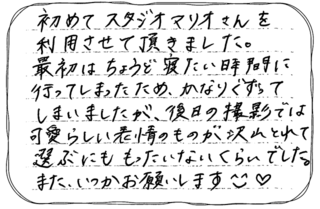 初めてスタジオマリオさんを
利用させて頂きました。
最初はちょうど寝たい時間に
行ってしまったため、かなりぐずって
しまいましたが、後日の撮影では
可愛らしい表情のものが沢山とれて
選ぶにももったいないくらいでした。
また、いつかお願いします☺♡